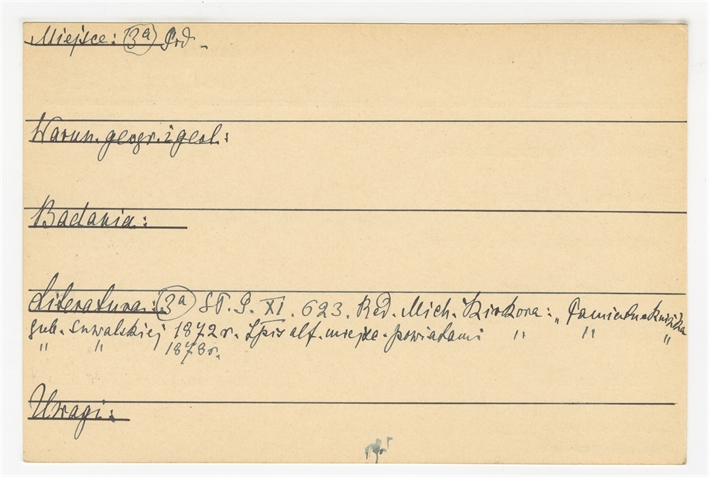 Miejsce: 3a Prd.
Warun. geogr. i geol.:
Badania:
Literatura: 3a Sł. G. XI. 623. Red. Mich. Kirkora: „Pamiatnaknižka
gub. Suwalskiej 1872 r. Spis alf. miejsc. powiatami " " "
" " 1878 r.
Uwagi: